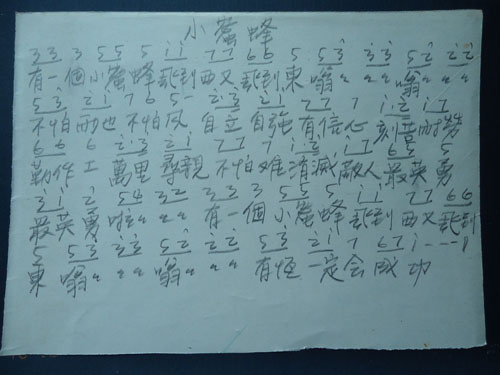 小蜜蜂
3 3 3 5 5 5 i i 7 7 6 6 5 5 3 3 3 5 2 2 2
有一個小蜜蜂飛到西又飛到東嗡〃〃〃嗡〃〃
5 3 2 i 7 6 5 - 2 3 2 i 7 7 7 i 2 i 7
不怕雨也不怕风 自立自強有信心刻苦耐勞
6 6 6 2 3 2 i 7 7 7 i 2 i 7 5 5
勤作工萬里尋親不怕难消滅敵人最英勇
3 i 2 5 4 3 2 3 3 3 5 5 5 i i 7 7 6 6
最英勇啦〃〃〃有一個小蜜蜂飛到西又飛到
5 5 3 3 3 5 2 2 2 5 3 2 i 7 6 7 i - - -
東嗡〃〃〃嗡〃〃〃有恆一定会成功